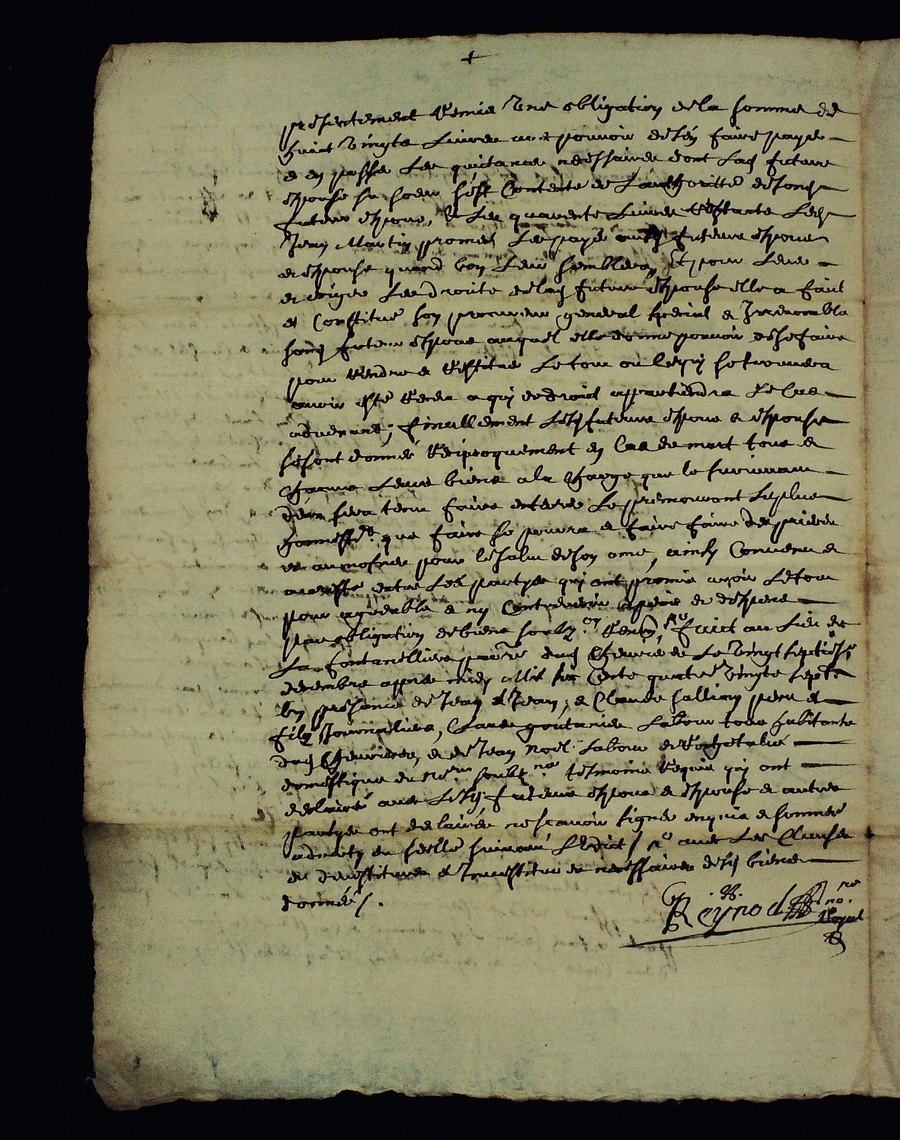 presentement remis une obligation de la somme de
huict vingts livres avec pouvoir de s'en faire payer
et en passer les quitances necessaires dont lad future
espouse sa soeur s'est contente de l'authoritté de sond
futeur espoux, & les quarente livres restants led
Jean Martin promet les payer ausd futeurs espoux
et espouse quand bon leur semblera, Et pour lever
et exiger les droits de lad future espouse elle a faict
et constitué son procureur general special et irrevocable
sond futeur espoux auquel elle donne pouvoir de ce faire
pour rendre et restituer le tout ou le qui se trouvera
avoir esté receu a qui de droit appartiendra le cas
advenant; finallement lesd futeurs espoux et espouse
se sont donnés reciproquement en cas de mort tous et
chacuns leurs biens a la charge que le survivant
d'eux sera tenu faire enterrer le premourant le plus
honnestt. que faire se pourra et faire faire des prieres
et aumosnes pour le salut de son ame, ainsy convenu et
arresté entre les partyes qui ont promis avoir le tout
pour agreable et ny contrevenir a peine de despens
par obligation de biens soubz.on renon.on &c faict au lieu de
La Fontanelliere parr.e dud Chevrieres le vingt septies.
decembre apres midy mil six cents quatre vingts sept
en presence de Jean et Jean, et Claude Salliany pere et
filz Journalliers, Claude goutarier labour. tous habitants
dud Chevrieres, et de Jean Noël labour. de
domestique du no.re soubz.né tesmoins requis qui ont
declairé avec lesd. futeurs espoux et espouse et autres
partyes ont declairés ne scavoir signer enquis et sommés
admitty du seelle suivant l'Edict / &c avec les clauses
de devestiture et Investiture necessaires desd biens
donnés /.
Reynod no.re
Royal